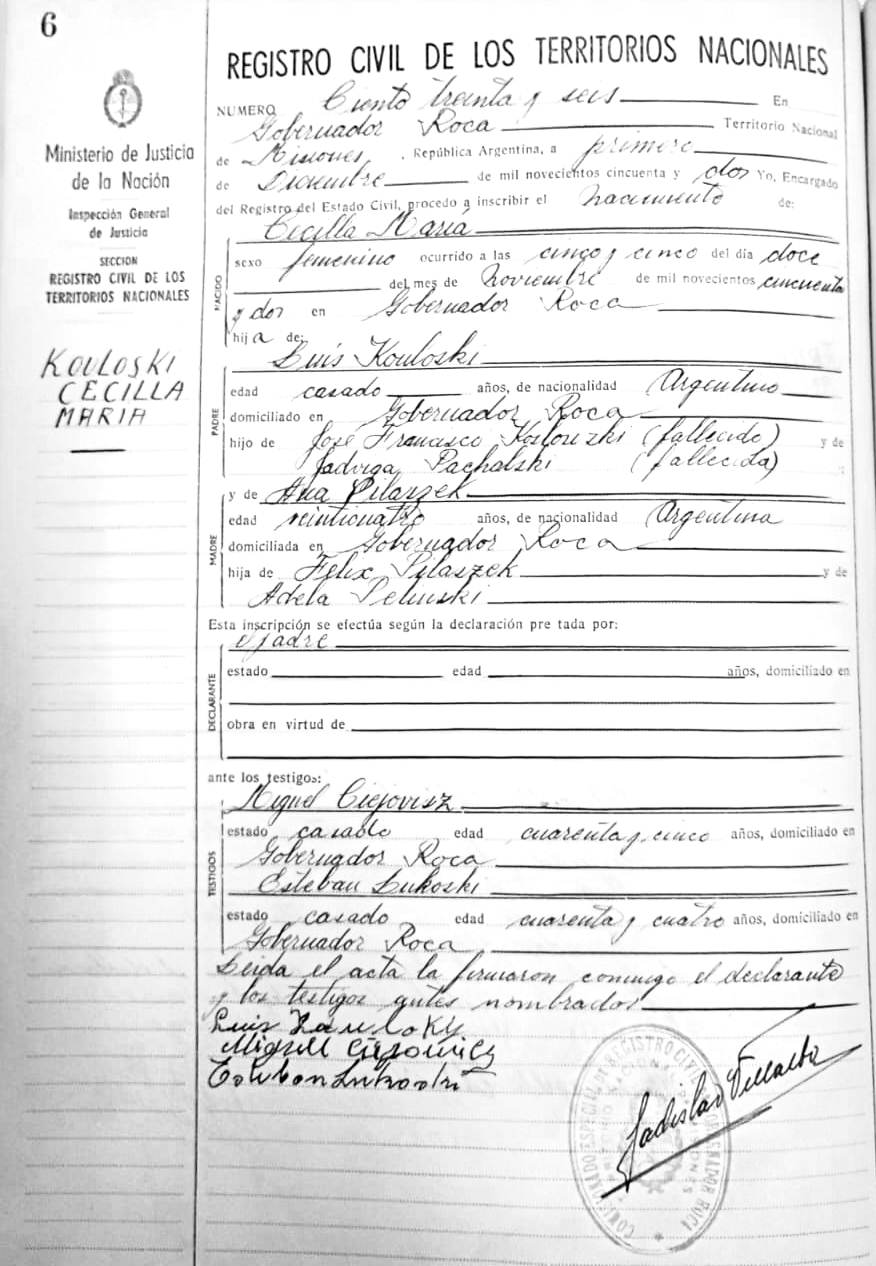 6
Ministerio de Justicia
de la Nación
Inspección General
de Justicia
SECCION
REGISTRO CIVIL DE LOS
TERRITORIOS NACIONALES
KOULOSKI
CECILLA
MARIA
REGISTRO CIVIL DE LOS TERRITORIOS NACIONALES
NUMERO Ciento treinta y seis En
Gobernador Roca Territorio Nacional
de Misiones, República Argentina, a primero
de Diciembre de mil novecientos cincuenta y dos Yo, Encargado
del Registro del Estado Civil, procedo a inscribir el nacimiento de:
Cecilla Mariá
NACIDO
sexo femenino ocurrido a las cinco y cinco del día doce
del mes de Noviembre de mil novecientos cincuenta
y dos en Gobernador Roca
hija de:
Luís Kouloski
PADRE
edad casado años, de nacionalidad Argentino
domiciliado en Gobernador Roca
hijo de José Francisco (fallecido) y de
Jadviga Pachalski (fallecida)
MADRE
y de Ana Pilaszek
edad veinticuatro años, de nacionalidad Argentina
domiciliada en Gobernador Roca
hija de Felix Pilaszek y de
Adela Pelinski
Esta inscripción se efectúa según la declaración pre tada por:
el padre
DECLARANTE
estado edad años, domiciliado en
obra en virtud de
ante los testigos:
Miguel Ciejovisz
TESTIGOS
estado casado edad cuarenta y cinco años, domiciliado en
Gobernador Roca
Esteban Lukoski
estado casado edad cuarenta y cuatro años, domiciliado en
Gobernador Roca
Leida el acta la firmaron conmigo el declarante
y los testigos antes nombrados
Luis
Miguel Ciejowicz
Esteban Lukoski
Ladislao Villalba
REGISTRO CIVIL
GOBERNADOR ROCA
MISIONES